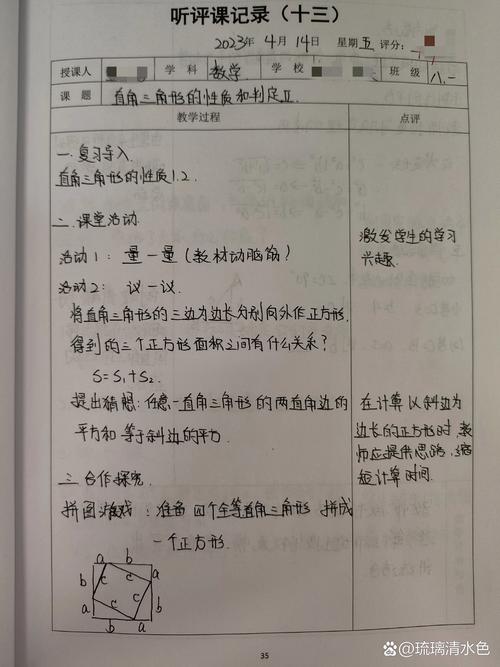 听评课记录（十三）
2023年 4月 14日 星期 五 评分：
授课人 学科 数学 学校 班级 八.一
课题 直角三角形的性质和判定Ⅱ.
教学过程 点评
一.复习导入
直角三角形的性质1.2.
二.课堂活动
活动1：量一量（教材动脑筋）
活动2：议一议.
将直角三角形的三边为边长分别向外作正方形.
得到的三个正方形面积之间有什么关系？
S=S₁+S₂.
提出猜想：任意一直角三角形的两直角边的
平方和等于斜边的平方.
三.合作探究.
拼图游戏：准备四个全等直角三角形 拼成
一个正方形.
a b
b c c a
a c c b
b a
激发学生的学习
兴趣.
在计算以斜边为
边长的正方形时,教
师应提供思路,缩
短计算时间.
35
琉璃清水色